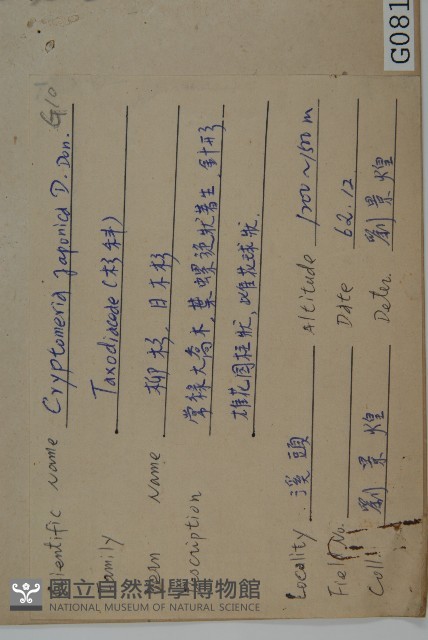 G081
G10
Scientific Name Cryptomeria japonica D. Don.
Family Taxodiaceae (杉科)
Name 柳杉, 日本杉
Description 常綠大喬木, 葉螺旋狀著生, 針形,
雄花圓柱狀, 雌花球狀.
Locality 溪頭 Altitude 1200~1500 m
Field No. Date 62.12
Coll. 劉景煌 Deter. 劉景煌
國立自然科學博物館
NATIONAL MUSEUM OF NATURAL SCIENCE